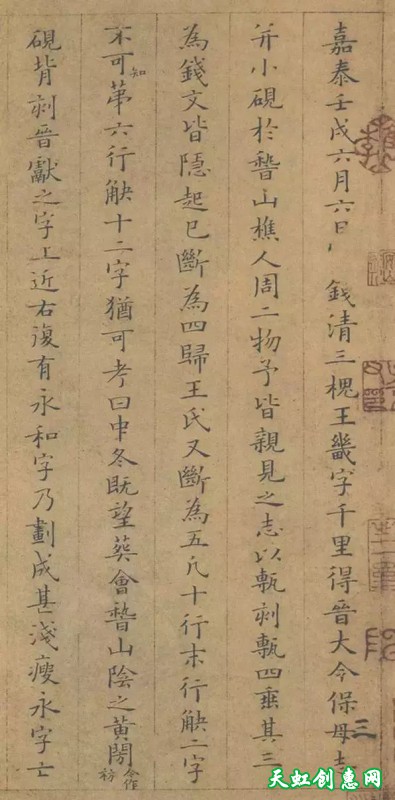 嘉泰壬戌六月六日 錢清三槐王畿字千里得晉大令保母志
并小硯於稽山樵人周二物予皆親見之志以甎刻甎四垂其三
為錢文皆隱起已斷為四歸王氏又斷為五凡十行末行觖二字
不可知苐六行觖十二字猶可考曰中冬既望葬會稽山陰之黃閍合作祊
硯背刻晉獻之字上近右復有永和字乃劃成甚淺瘦永字亡
天虹创惠网